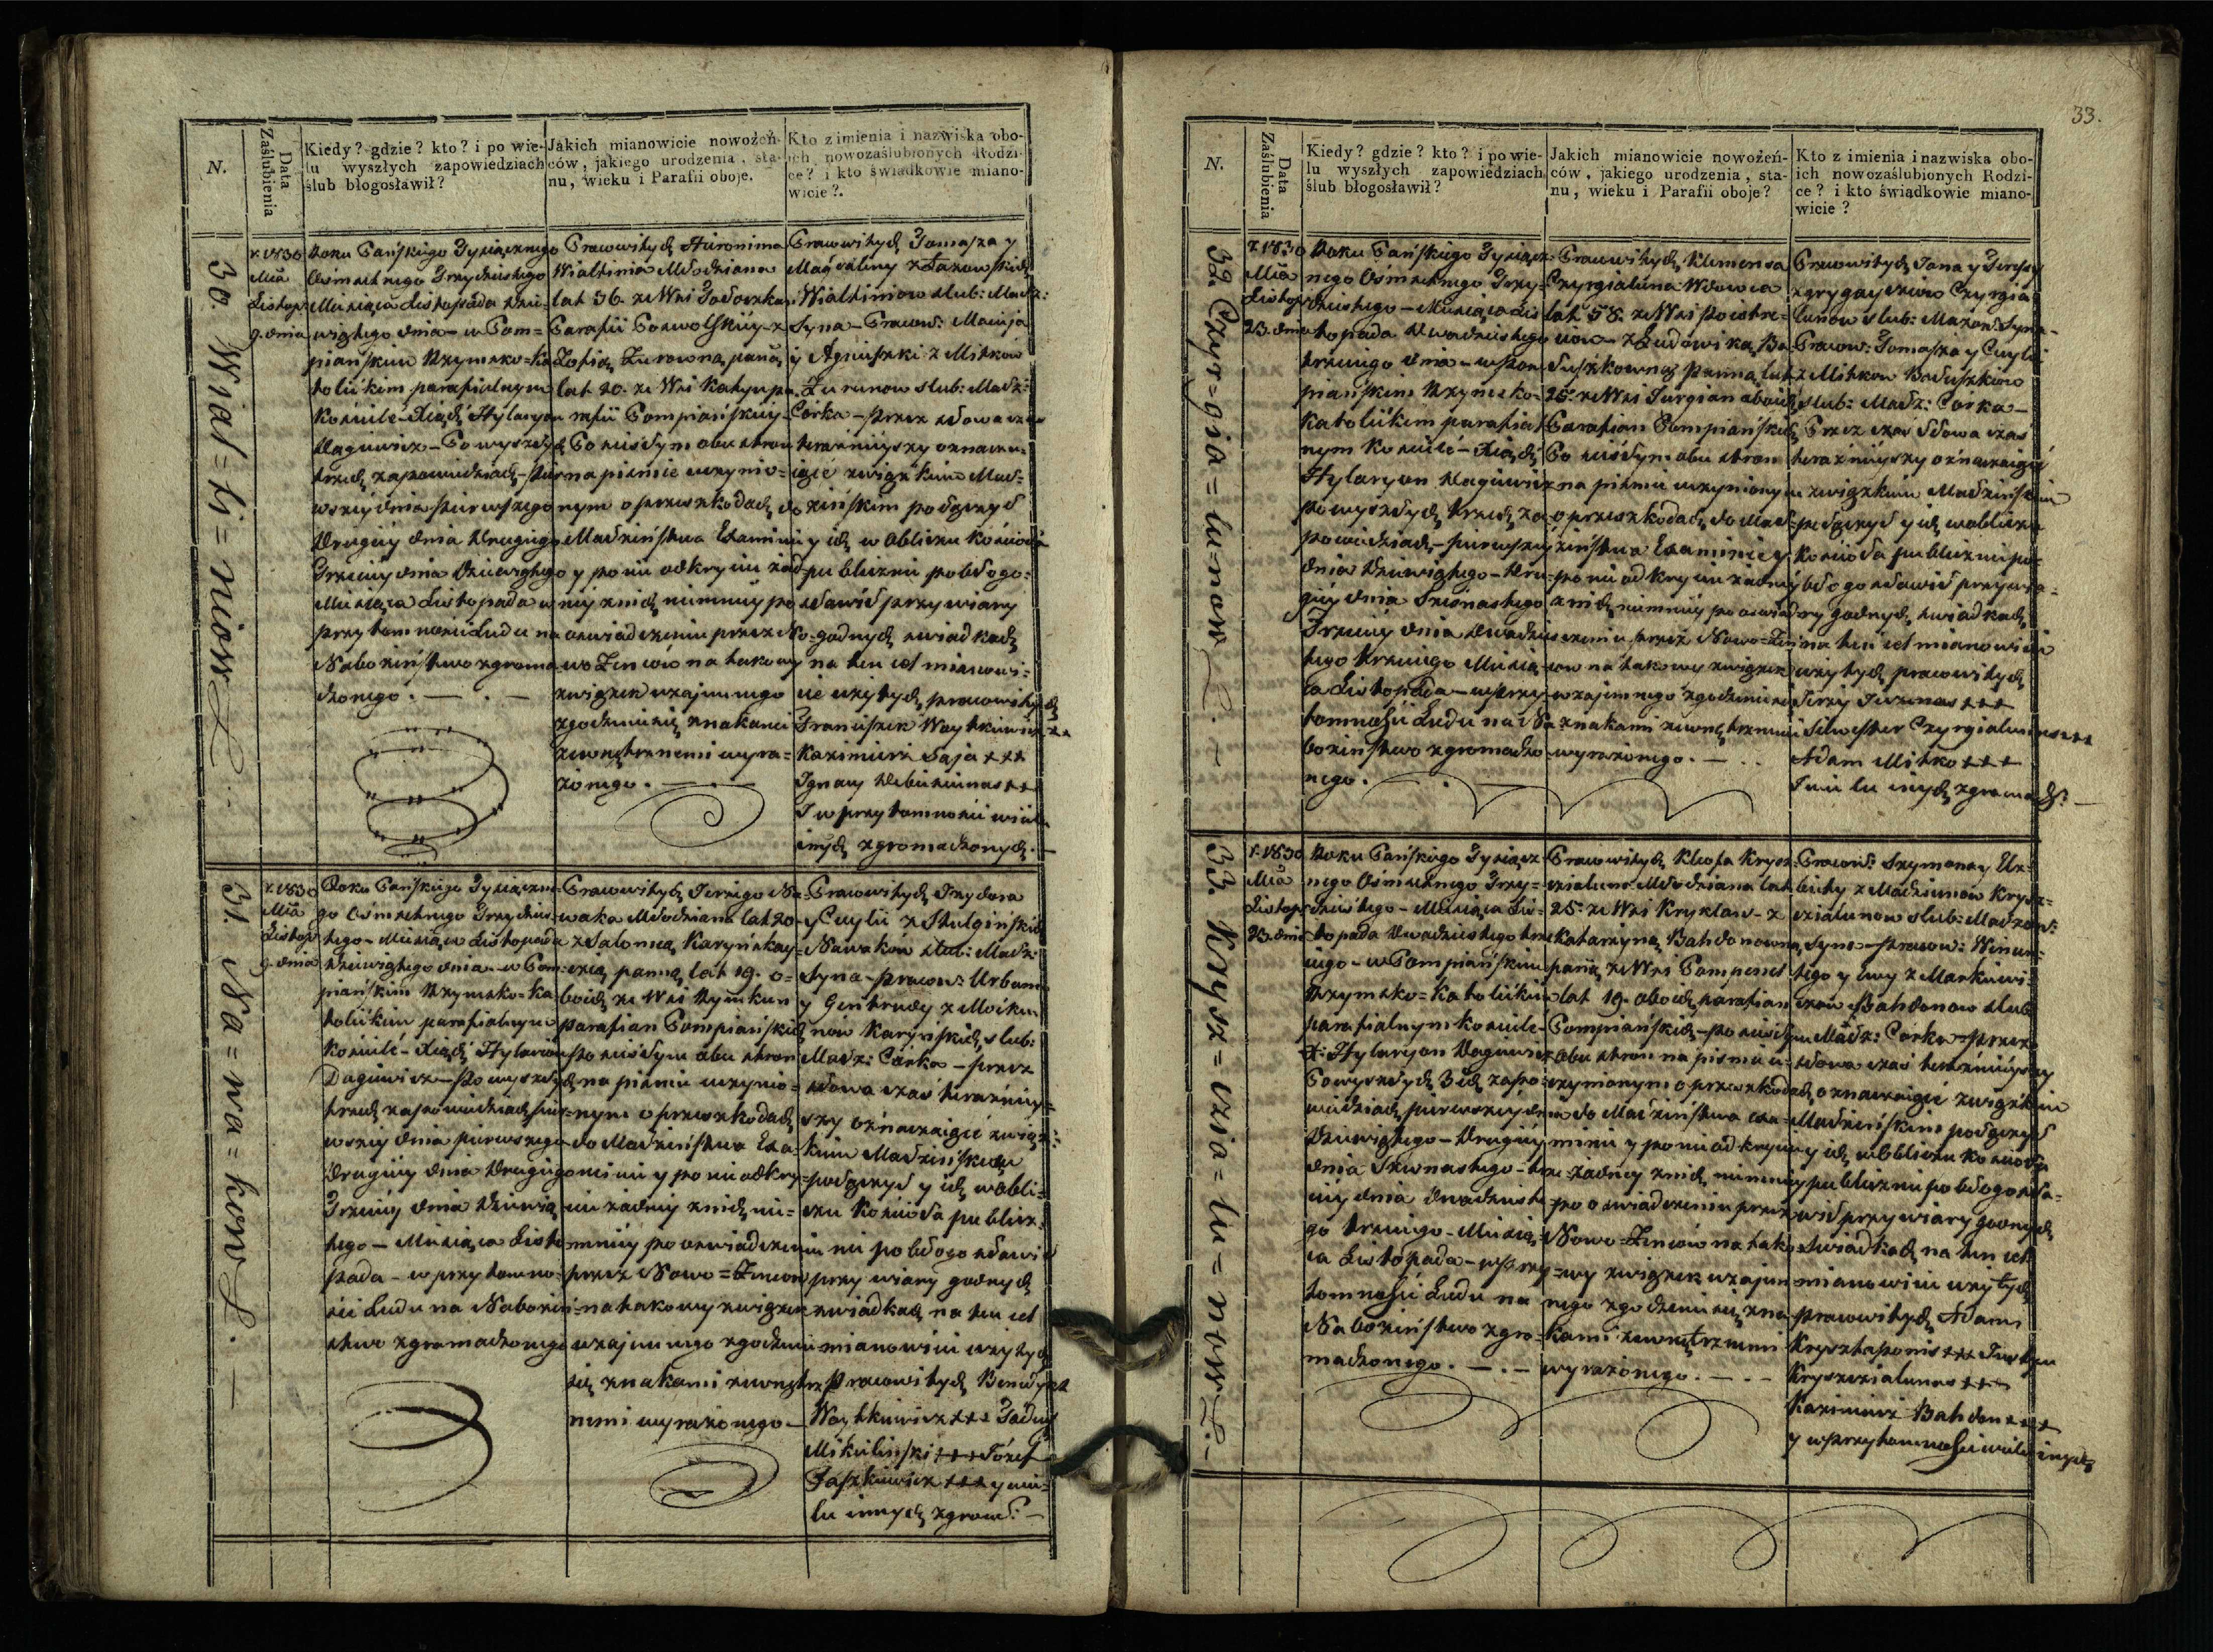 N.
Data
Zaślubienia
Kiedy? gdzie? kto? i po wie-
lu wyszłych zapowiedziach
ślub błogosławił?
Jakich mianowicie nowożeń-
ców, jakiego urodzenia, sta-
nu, wieku i Parafii oboje.
Kto z imienia i nazwiska obo-
ich nowozaślubionych Rodzi-
ce? i kto świadkowie miano-
wicie?.
30. Wial=ti=niow
r. 1830
Mca
Listop
9. dnia
Roku Pańskiego Tysiącznego
Ośmsetnego Trzydziestego
Miesiąca Listopada dzie-
wiątego dnia - w Pom=
piańskim Rzymsko=Ka
tolickim parafialnym
Kościele - Xiądź Hylaryon
Daginwicz - Po wyszłych
trzech zapowiedziach - pier
wszey dnia pierwszego
Drugiey dnia drugiego
Trzeciey dnia dziewiątego
Miesiąca Listopada w
przytomności Ludu na
Nabożeństwo zgroma
dzonego. — . —
Pracowitych Hieronima
Wialtinia Młodziana
lat 36. ze Wsi
Parafii
Zofią Żurowną panną
lat 20. ze Wsi
rafii Pompiańskiey
Po ścisłym obu stron
na piśmie uczynio=
nym o przeszkodach do
Małżeństwa Examinie
y po nie odkryciu żad
ney z nich nimniey po
oswiadczeniu przez No=
wo Żencow na takowy
związek wzajemnego
zgodzenia się znakami
zewnętrznemi wyra=
żonego. —
Pracowitych Tomasza y
Magdaleny z
Wialtiniow slub: Małż:
Syna - Pracow: Macieja
y Agnieszki z Mitkow
Żurunow slub: Małż:
Córka - przez słowa czas
teraźnieyszy oznacza=
iące związkiem Mał=
żeńskim połączył
y ich w Obliczu Kościoła
publicznie pobłogo=
sławił przy wiary
godnych swiadkach
na ten cel mianowi=
cie użytych pracowitych
Franciszek Woytkiewicz xx
Kazimierz Saja xxx
Ignacy xx
I w przytomności wielu
innych zgromadzonych. —
31. No=wa=kow
r. 1830
Mca
Listop
9. dnia
Roku Pańskiego Tysiączne-
go Ośmsetnego Trzydzies-
tego - Miesiąca Listopada
dziewiątego dnia - w Pom=
piańskim Rzymsko=Ka
tolickim parafialnym
Kościele - Xiądź Hylarion
Daginwicz - Po wyszłych
trzech zapowiedziach pier=
wszey dnia pierwszego
drugiey dnia drugiego
Trzeciey dnia dziewią
tego - Miesiąca Listo
pada - w przytomno=
ści Ludu na Nabożeń=
stwo zgromadzonego
Pracowitych Jerzego No-
waka Młodziana lat 20 -
z Salomeą
panną lat 19. o-
boich ze Wsi
parafian Pompiańskich
po ścisłym obu stron
na piśmie uczynio=
nym o przeszkodach
do Małżeństwa Exa=
minie y po nie odkry=
ciu żadney z nich ni=
mniey po oswiadczeniu
przez Nowo=Żencow
na takowy związek
wzajemnego zgodzenia
się znakami zewnętrz
nemi wyrażonego —
Pracowitych Izydora
y Cecylii z Stulgińskich
Nowakow slub: Małż:
Syna - pracow: Urbana
y Gertrudy z
slub:
Małż: Córka - przez
słowa czas teraźniey=
szy oznaczaiące związ=
kiem Małżeńskim
połączył y ich w obli=
czu Kościoła publicz=
nie pobłogosławił
przy wiary godnych
swiadkach na ten cel
mianowicie użytych
Pracowitych Benedykt
Woytkiewicz xxx Tadeusz
Mikulinski xxx Józef
Paszkiewicz xxx y wie=
lu innych zgrom: —
33.
N.
Data
Zaślubienia
Kiedy? gdzie? kto? i po wie-
lu wyszłych zapowiedziach
ślub błogosławił?
Jakich mianowicie nowożeń-
ców, jakiego urodzenia, sta-
nu, wieku i Parafii oboje?
Kto z imienia i nazwiska obo-
ich nowozaślubionych Rodzi-
ce? i kto świadkowie miano-
wicie?
32. Czyr=gia=lu=now
r. 1830
Mca
Listop
23. dnia
Roku Pańskiego Tysiącz
nego Ośmsetnego Trzy=
dziestego - Miesiąca Lis
topada dwudziestego
trzeciego dnia - w Pom
piańskim Rzymsko=
Katolickim parafial
nym Kościele - Xiądź
Hylaryon Daginwicz
po wyszłych trzech za=
powiedziach - pierwszey
dnia dziewiątego - Dru=
giey dnia Szesnastego
Trzeciey dnia dwudzies
tego trzeciego Miesią
ca Listopada - w przy
tomności Ludu na Na
bożeństwo zgromadzo
nego. —
Pracowitych Klemensa
Czyrgialuna Wdowca
lat 58. ze Wsi
z Ludowiką Ba
duszkowną Panną lat
25. ze Wsi Jurgian oboich
Parafian Pompiańskich
Po ścisłym obu stron
na piśmie uczynionym
o przeszkodach do Mał=
żeństwa Examinie y
po nie odkryciu żadney
z nich nimniey po oswiad
czeniu przez Nowo=Żen
cow na takowy związek
wzajemnego zgodzenia się
znakami zewnętrznemi
wyrażonego. —
Pracowitych Jana y Teresy
z Czyrgia
lunow slub: Małżon: Syna -
Pracow: Tomasza y Cecylii
z Mitkow Baduszkow
slub: Małż: Córka -
Przez słowa czas
teraźnieyszy oznaczaiące
związkiem Małżeńskim
połączył y ich w obliczu
Kościoła publicznie po=
błogosławił przy wia=
ry godnych swiadkach
na ten cel mianowicie
użytych pracowitych
Jerzy xxx
Sylwester Czyrgialunas xxx
Adam Mitko xxx
I wielu innych zgromadz:
33. Krysz=czia=lu=now
r. 1830
Mca
Listop
23. dnia
Roku Pańskiego Tysiącz
nego Ośmsetnego Trzy=
dziestego - Miesiąca Lis=
topada dwudziestego trze
ciego - w Pompiańskim
Rzymsko=Katolickim
parafialnym Kościele -
X: Hylaryon Daginwicz
Po wyszłych 3ch zapo=
wiedziach pierwszey dnia
Dziewiątego - Drugiey
dnia Szesnastego - trze
ciey dnia dwudzieste
go trzeciego - Miesią
ca Listopada - w przy=
tomności Ludu na
Nabożeństwo zgro=
madzonego. — . —
Pracowitych Kleofa Krysz=
czialuna Młodziana lat
25. ze Wsi Kryklan - z
Katarzyną Bahdonowną
panną ze Wsi
lat 19. oboich parafian
Pompiańskich - po ścisłym
obu stron na piśmie u=
czynionym o przeszkodach
do Małżeństwa Exa=
minie y po nie odkryciu
żadney z nich nimniey
po oswiadczeniu przez
Nowo=Żencow na tako
wy związek wzajem=
nego zgodzenia się zna
kami zewnętrznemi
wyrażonego. — . —
Pracow: Szymona y Elż=
biety z Krysz=
czialunow slub: Małżon:
Syna - pracow: Wincen=
tego y Ewy z Markiewi=
czow Bahdonow slub
Małż: Corka przez
słowa czas teraźnieyszy
oznaczaiące związkiem
Małżeńskim połączył
y ich w Obliczu Kościoła
publicznie pobłogosła=
wił przy wiary godnych
swiadkach na ten cel
mianowicie użytych
pracowitych Adam
xxx
Kryszczialunas xxx
Kazimierz Bahdon xxx
y w przytomności wielu innych